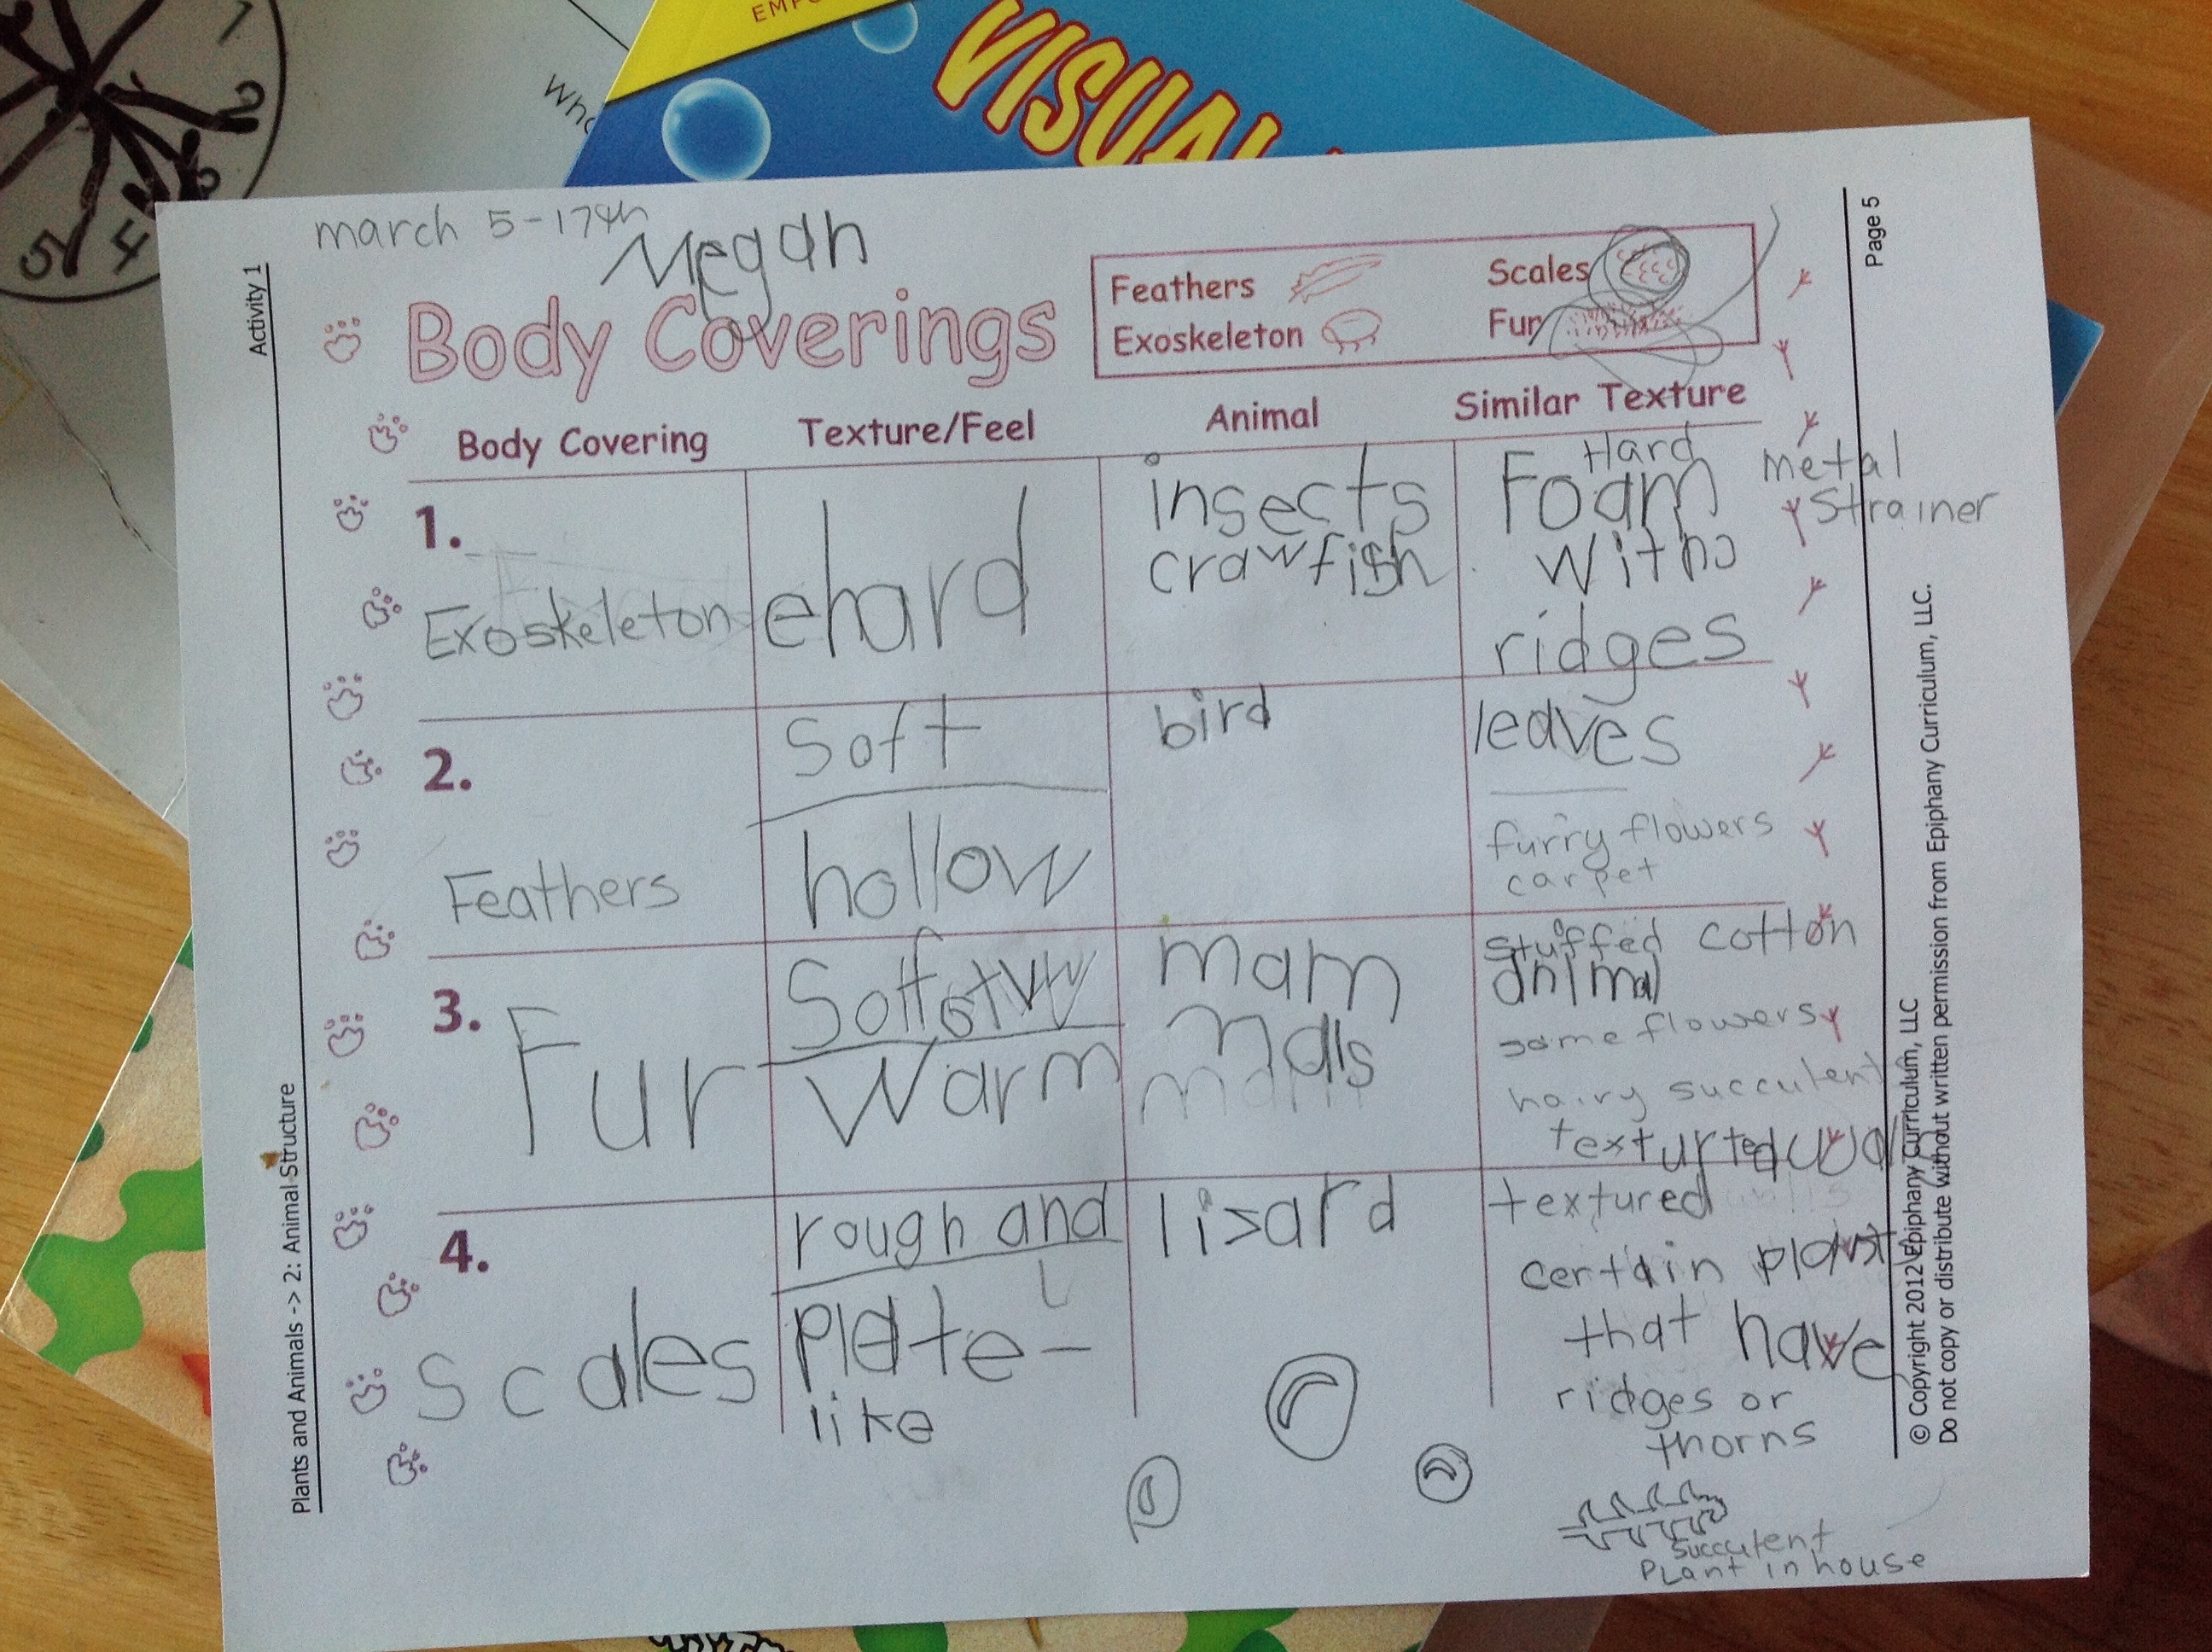 EMPO
VISUAL
Who
1
2
3
4
5
march 5-17th
Megan
Activity 1
Page 5
Body Coverings
Feathers
Scales
Exoskeleton
Fur
Body Covering
Texture/Feel
Animal
Similar Texture
1.
Exoskeleton
ehard
insects
crawfish
Hard
Foam
with
ridges
metal
strainer
2.
Feathers
Soft
hollow
bird
leaves
furry flowers
carpet
3.
Fur
Soft
Warm
mam
mals
stuffed cotton
animal
some flowers
hairy succulent
4.
Scales
rough and
plate-
like
lizard
textured
certain plants
that have
ridges or
thorns
succulent
Plant in house
Plants and Animals -> 2: Animal Structure
© Copyright 2012 Epiphany Curriculum, LLC
Do not copy or distribute without written permission from Epiphany Curriculum, LLC.